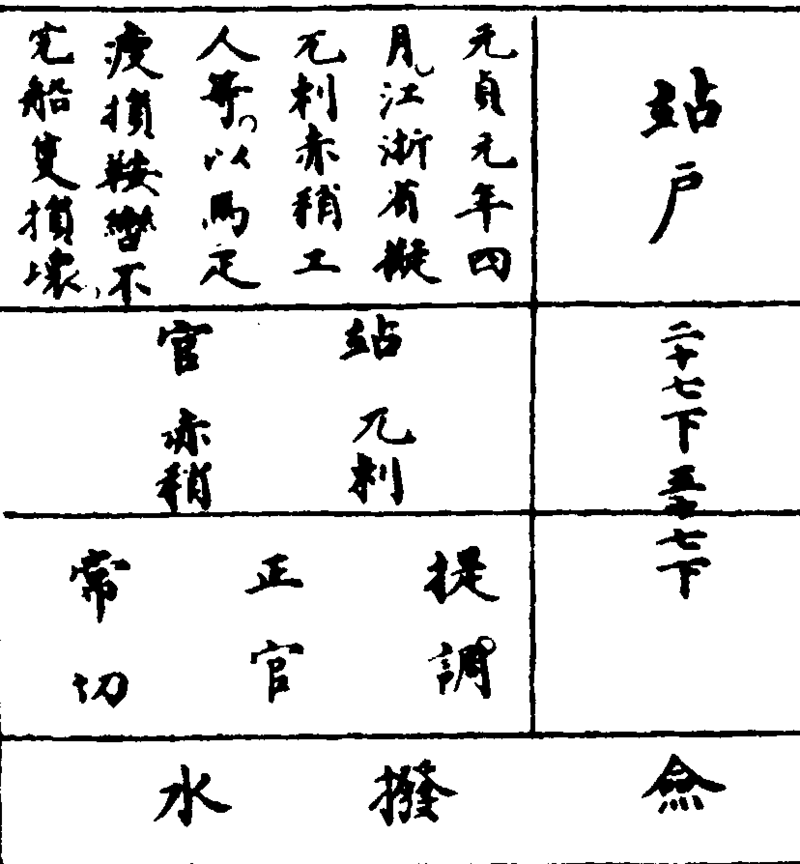 站戶
二十七下五十七下
元貞元年四
月江浙省擬
兀剌赤稍工
人等以馬疋
瘦損鞍轡不
完船隻損壞
站兀剌
官赤稍
提調
正官
常切
僉撥水